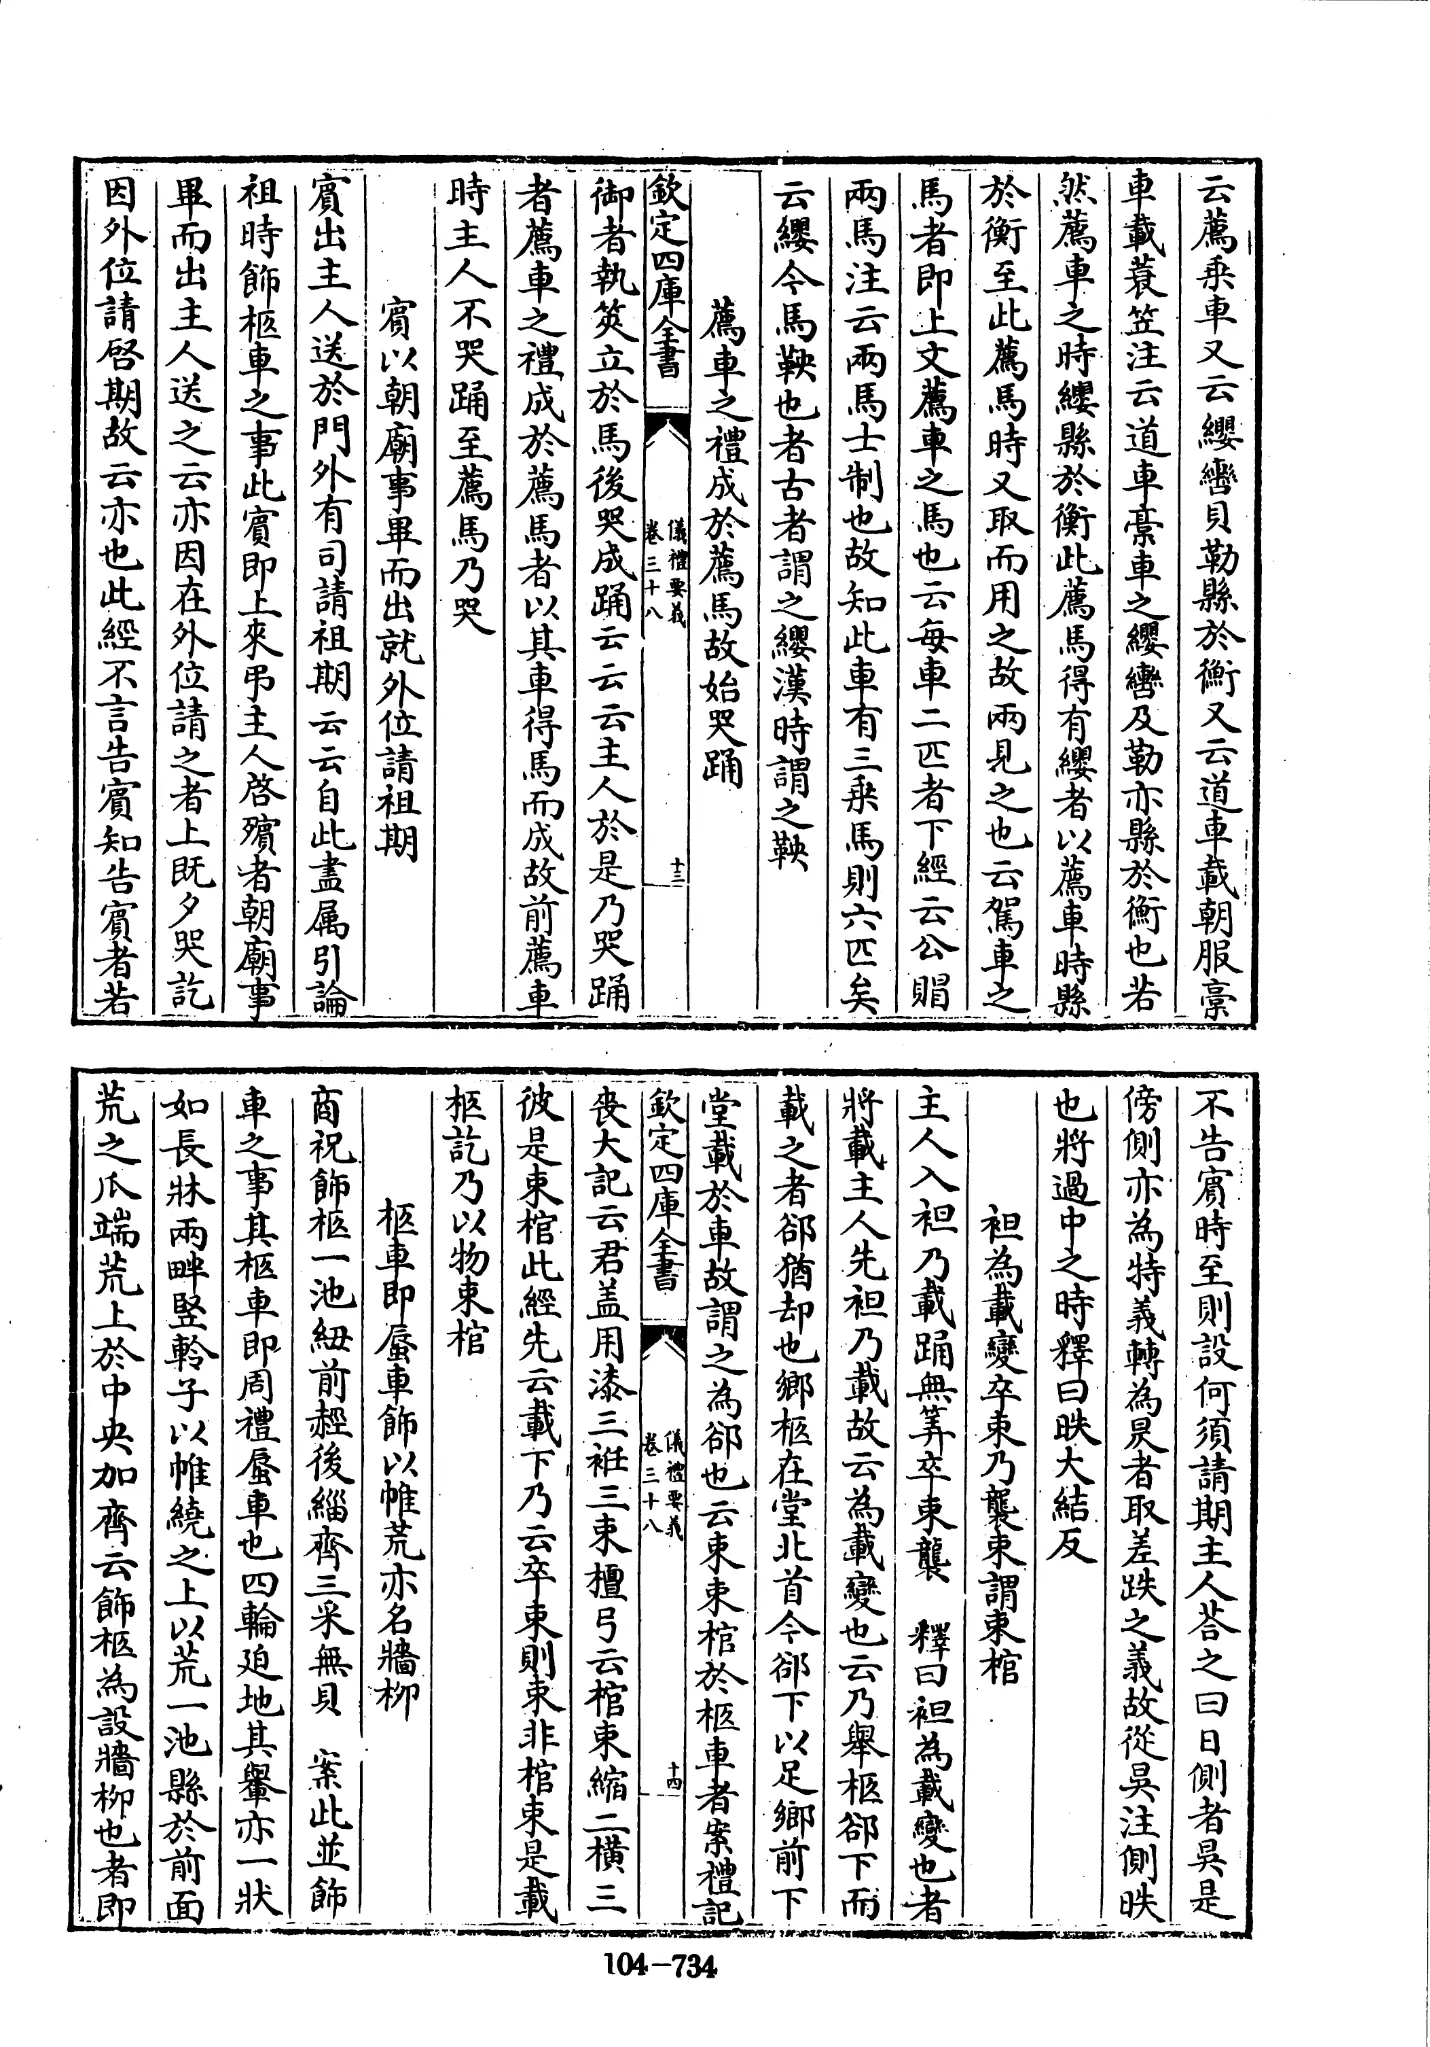 云薦乘車又云纓轡貝勒縣於衡又云道車載朝服稾
車載蓑笠注云道車稾車之纓轡及勒亦縣於衡也若
然薦車之時纓縣於衡此薦馬得有纓者以薦車時縣
於衡至此薦馬時又取而用之故兩見之也云駕車之
馬者即上文薦車之馬也云每車二匹者下經云公賵
兩馬注云兩馬士制也故知此車有三乘馬則六匹矣
云纓今馬鞅也者古者謂之纓漢時謂之鞅
薦車之禮成於薦馬故始哭踊
欽定四庫全書
儀禮要義
卷三十八
十三
御者執筴立於馬後哭成踊云云云主人於是乃哭踊
者薦車之禮成於薦馬者以其車得馬而成故前薦車
時主人不哭踊至薦馬乃哭
賓以朝廟事畢而出就外位請祖期
賓出主人送於門外有司請祖期云云自此盡屬引論
祖時飾柩車之事此賓即上來弔主人啓殯者朝廟事
畢而出主人送之云亦因在外位請之者上既夕哭訖
因外位請啓期故云亦也此經不言告賓知告賓者若
不告賓時至則設何須請期主人荅之曰日側者昃是
傍側亦為特義轉為昃者取差跌之義故從昃注側昳
也將過中之時釋曰昳大結反
袒為載變卒束乃襲束謂束棺
主人入袒乃載踊無筭卒束襲 釋曰袒為載變也者
將載主人先袒乃載故云為載變也云乃舉柩郤下而
載之者郤猶却也鄉柩在堂北首今郤下以足鄉前下
堂載於車故謂之為郤也云束束棺於柩車者案禮記
欽定四庫全書
儀禮要義
卷三十八
十四
喪大記云君盖用漆三衽三束檀弓云棺束縮二横三
彼是束棺此經先云載下乃云卒束則束非棺束是載
柩訖乃以物束棺
柩車即蜃車飾以帷荒亦名牆柳
商祝飾柩一池紐前經後緇齊三采無貝 案此並飾
車之事其柩車即周禮蜃車也四輪迫地其轝亦一狀
如長牀兩畔竪軨子以帷繞之上以荒一池縣於前面
荒之爪端荒上於中央加齊云飾柩為設牆柳也者即
104-734